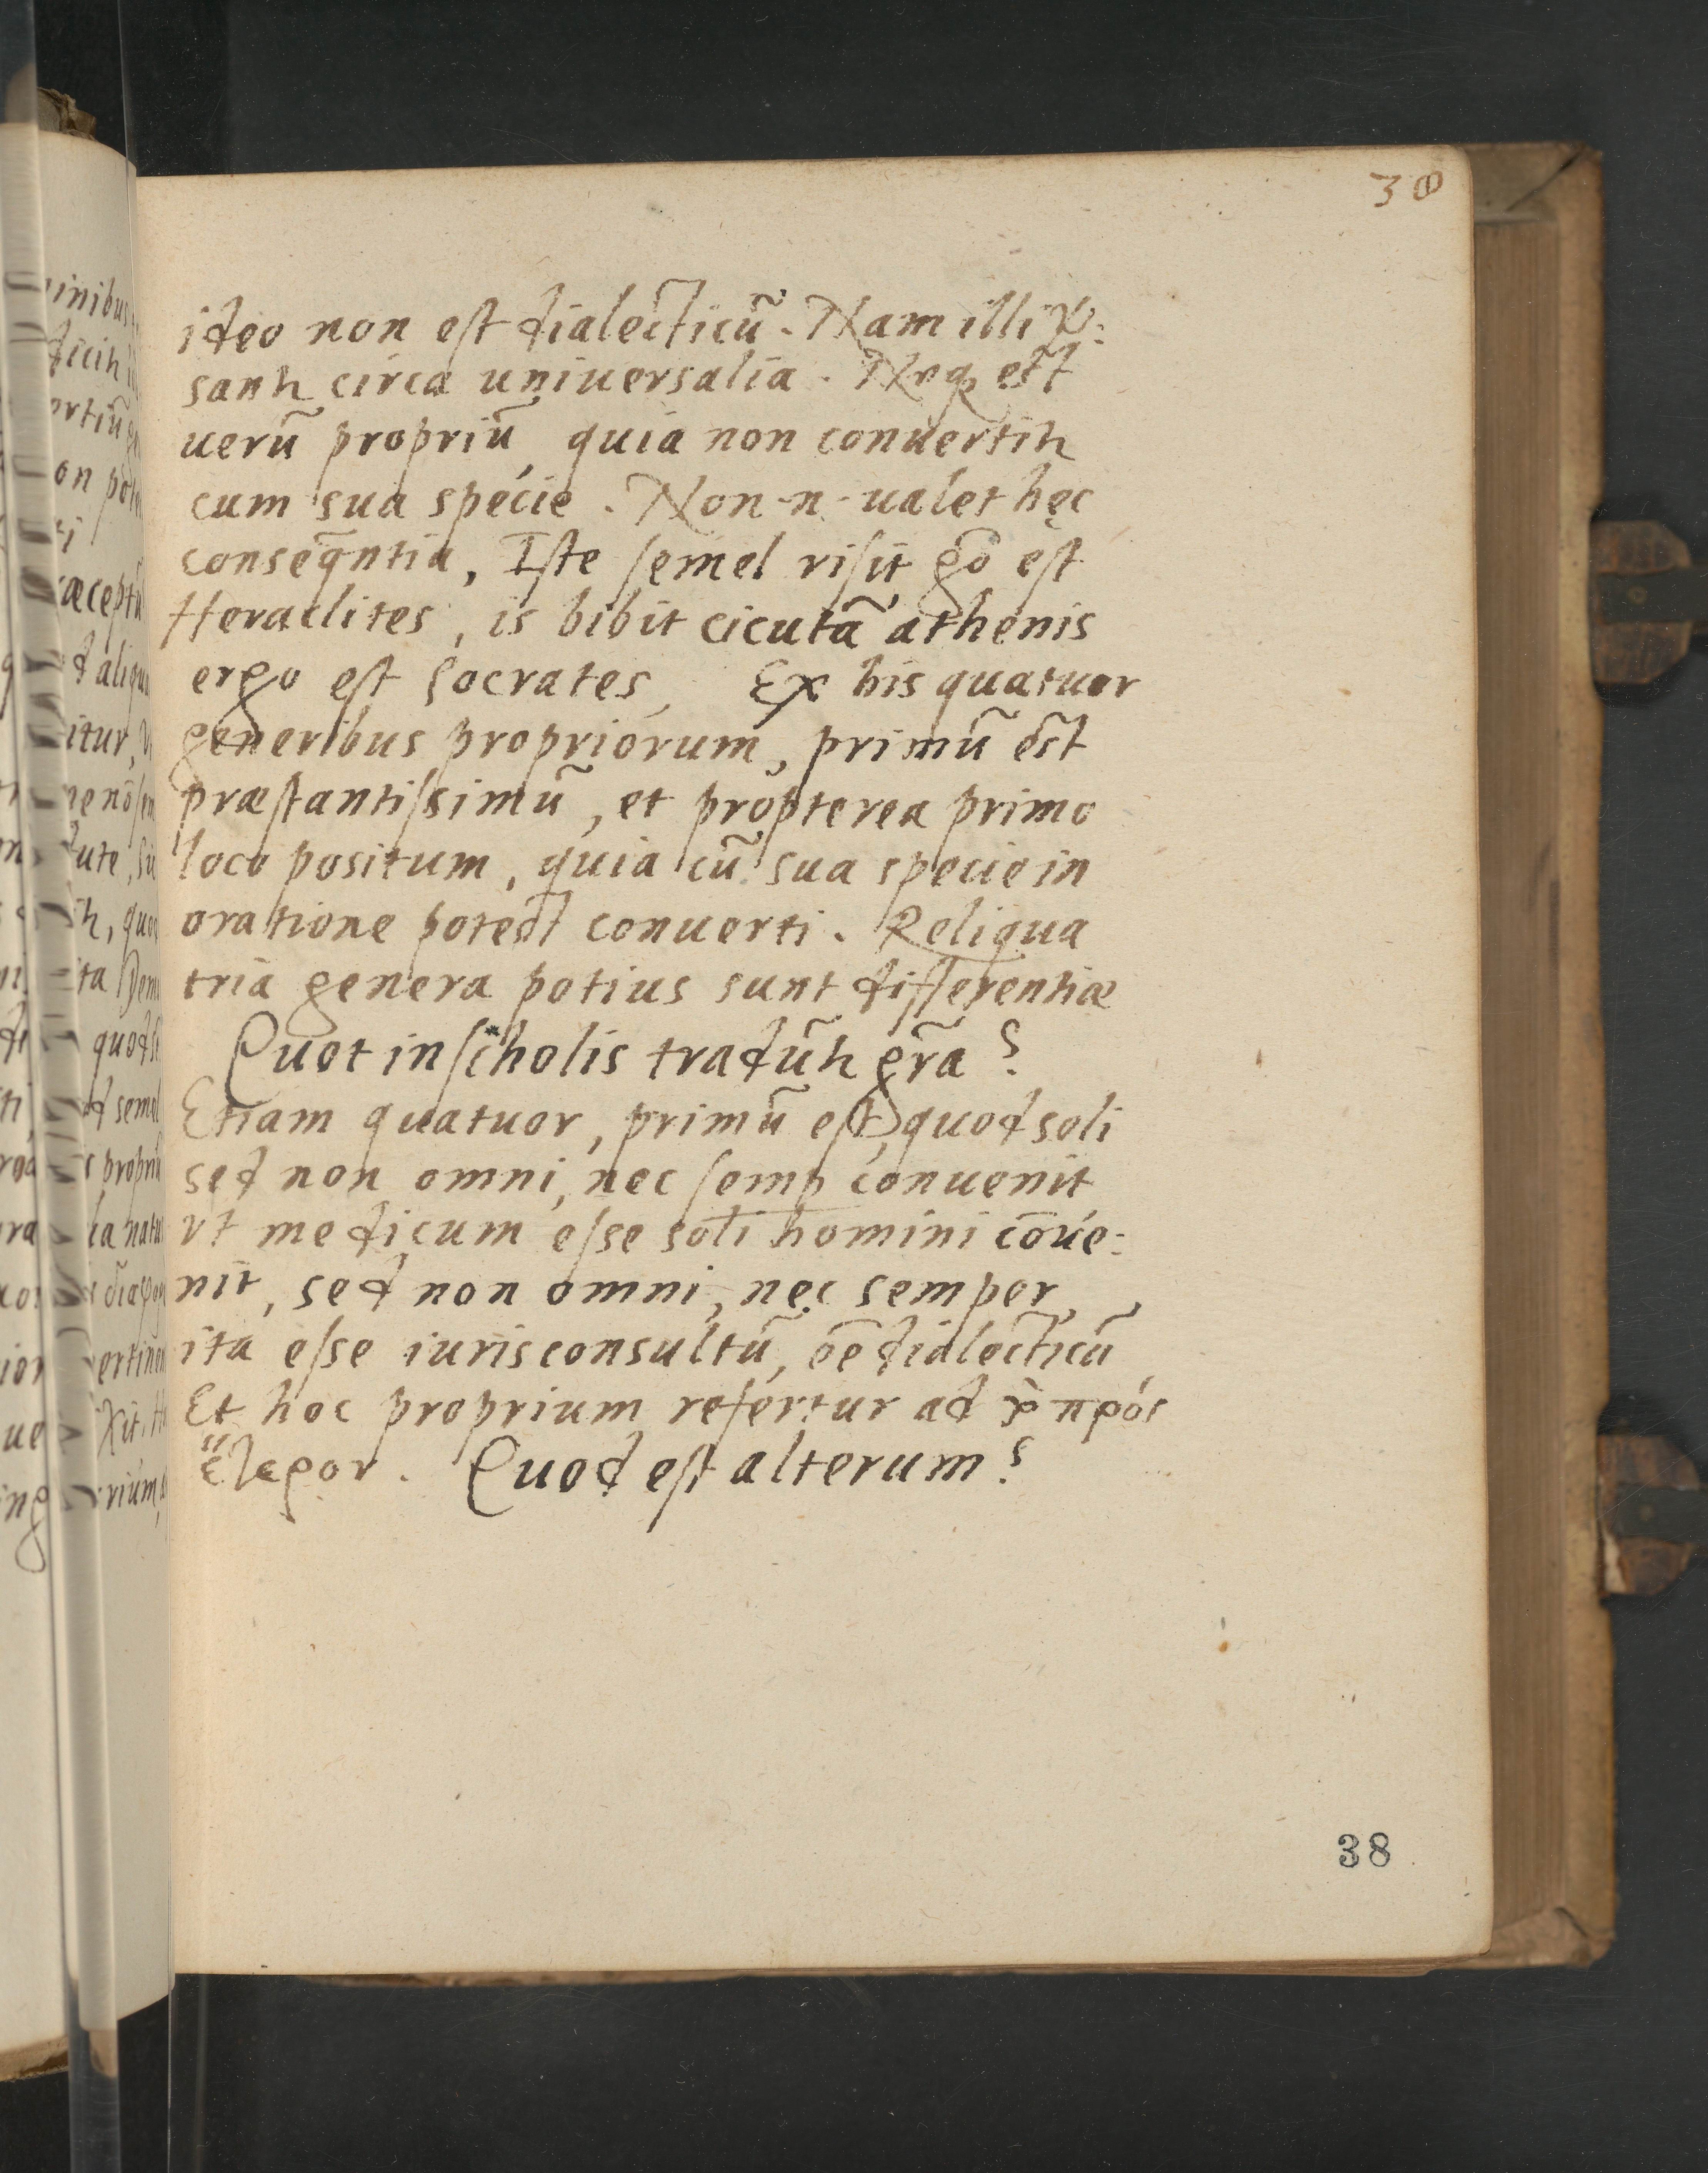 38
ideo non est dialecticũ. Nam illi ỹ:
santr circa uniuersalia. Neqꝫ est
uerũ propriũ, quia non conuertitr
cum sua specie. Non .n. ualet hęc
conseq̃ntia, Iste semel risit gõ est
Heraclites, is bibit cicutã athenis
ergo est Socrates, Ex his quatuor
generibus propriorum, primũ est
præstantissimũ, et propterea primo
loco positum, quia cũ sua specie in
oratione potest conuerti. Reliqua
tria genera potius sunt differentiæ
Quot in scholis tradũtr gr̃a?
Etiam quatuor, primũ est, quod soli
sed non omni, nec semꝑ conuenit
vt medicum esse soli homini cõue:
nit, sed non omni, nec semper,
ita esse iurisconsultũ, eẽ dialecticũ
Et hoc proprium refertur ad πρός
ἕτερον. Quod est alterum?
38